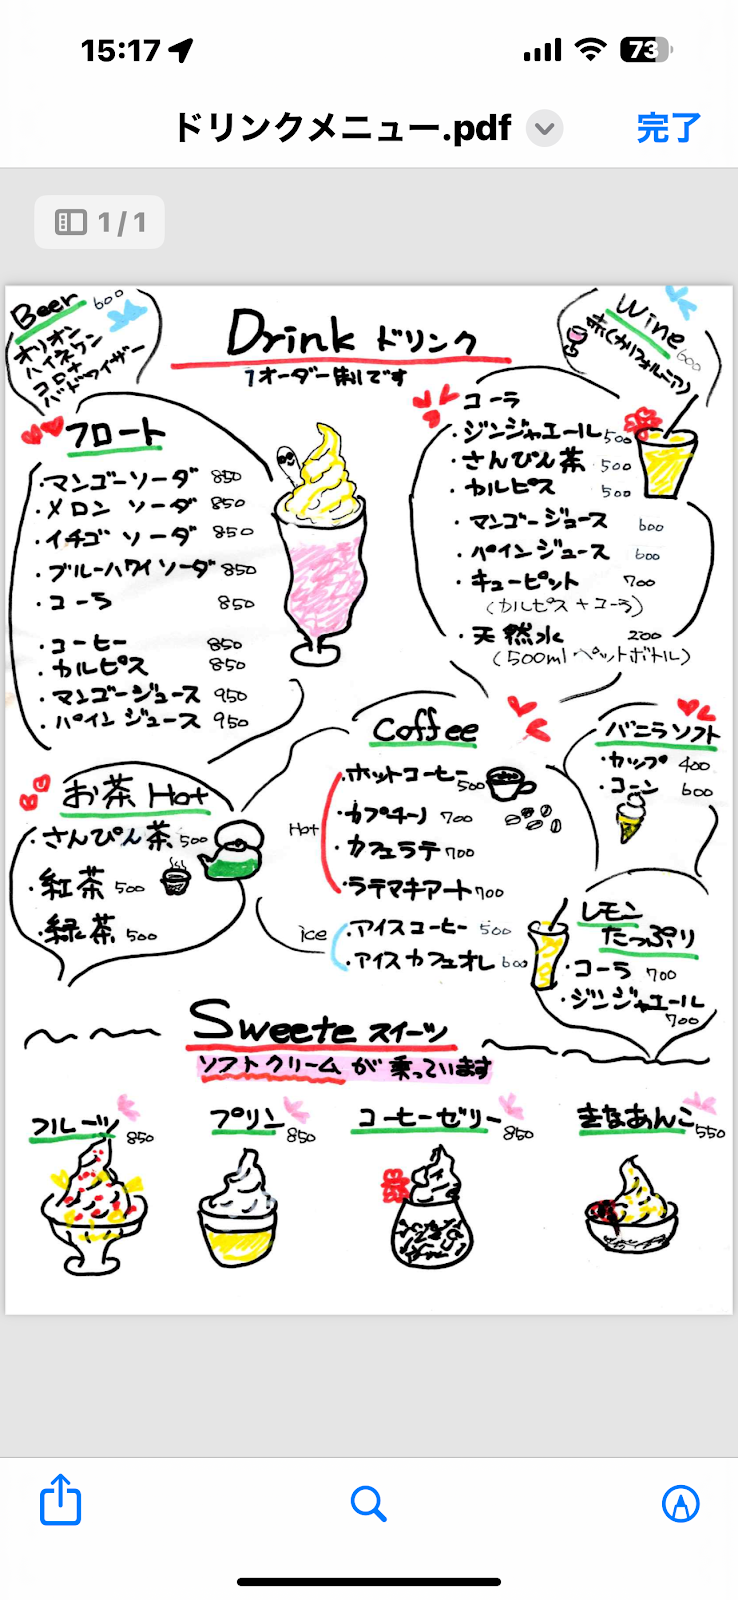 15:17
73
ドリンクメニュー.pdf
完了
1/1
Beer 600
オリオン
ハイネケン
コロナ
バドワイザー
Drink ドリンク
1オーダー制です
Wine
赤(カリフォルニア) 600
フロート
・マンゴーソーダ 850
・メロン ソーダ 850
・イチゴ ソーダ 850
・ブルーハワイソーダ 850
・コーラ 850
・コーヒー 850
・カルピス 850
・マンゴージュース 950
・パインジュース 950
コーラ
・ジンジャエール 500
・さんぴん茶 500
・カルピス 500
・マンゴージュース 600
・パインジュース 600
・キューピット 700
(カルピス+コーラ)
・天然水 200
(500ml ペットボトル)
お茶 Hot
・さんぴん茶 500
・紅茶 500
・緑茶 500
Coffee
Hot
・ホットコーヒー 500
・カプチーノ 700
・カフェラテ 700
・ラテマキアート 700
ice
・アイスコーヒー 500
・アイスカフェオレ 600
バニラソフト
・カップ 400
・コーン 600
レモン
たっぷり
・コーラ 700
・ジンジャエール
700
Sweete スイーツ
ソフトクリームが乗っています
フルーツ 850
プリン 850
コーヒーゼリー 850
きなあんこ 550